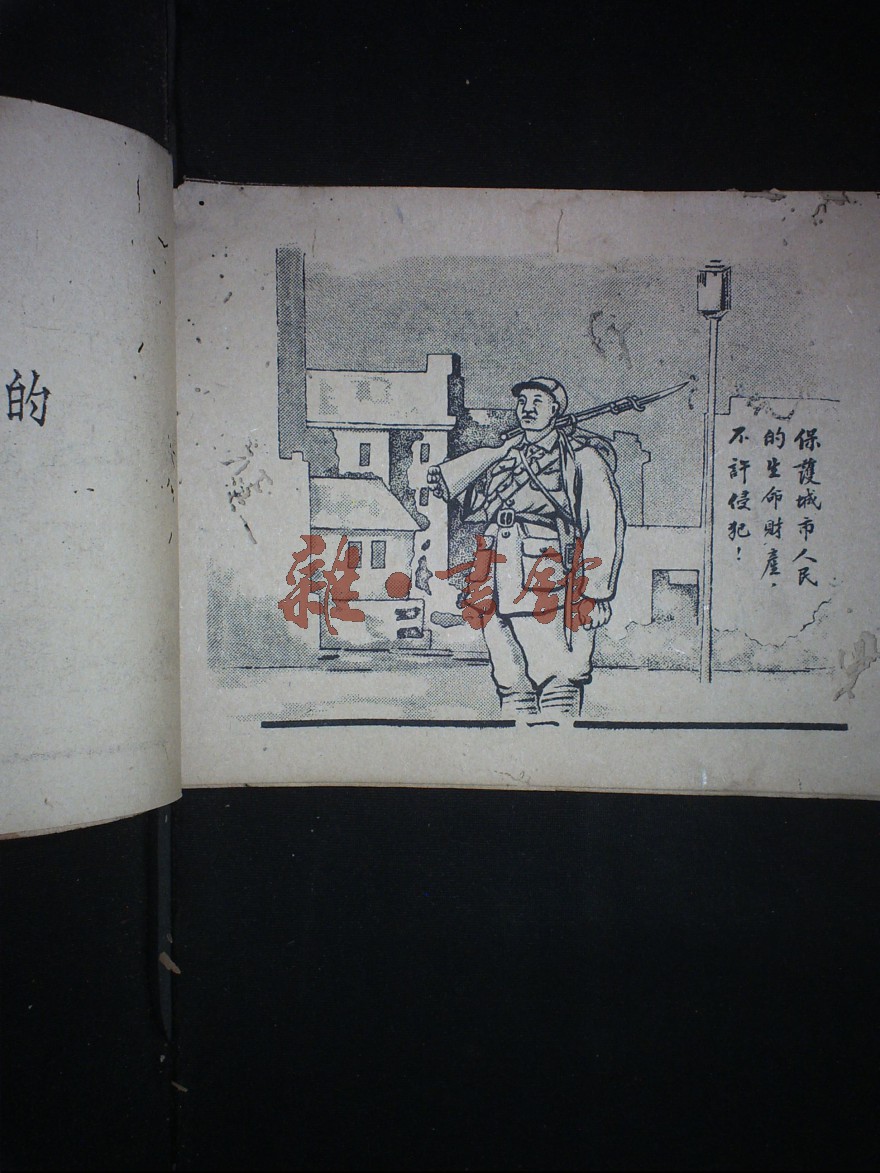 保護城市人民
的生命財產，
不許侵犯！
的
雜·書館